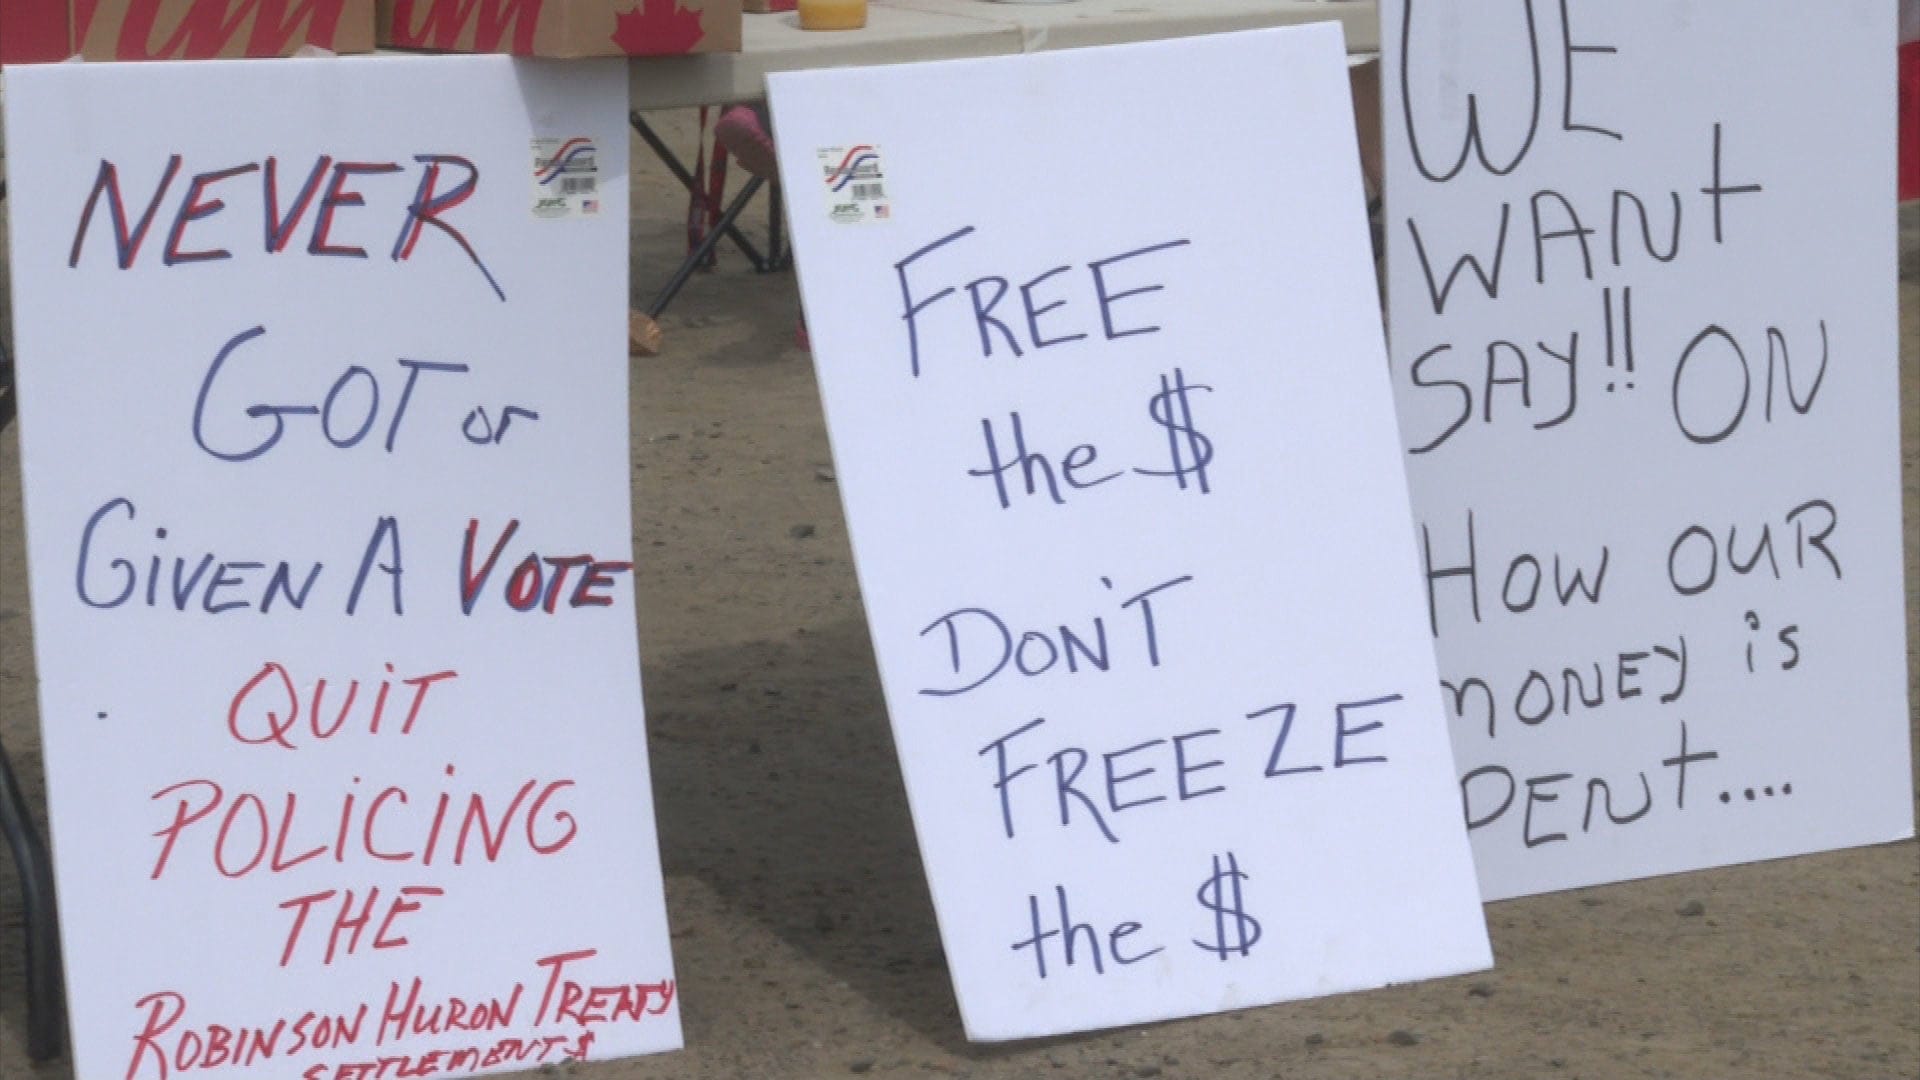 NEVER
GOT or
GIVEN A VOTE
QUIT
POLICING
THE
ROBINSON HURON TREATY
SETTLEMENT $
FREE
the $
DON'T
FREEZE
the $
WE
WANt
SAY!! ON
HOW OUR
MONEY is
PENt....